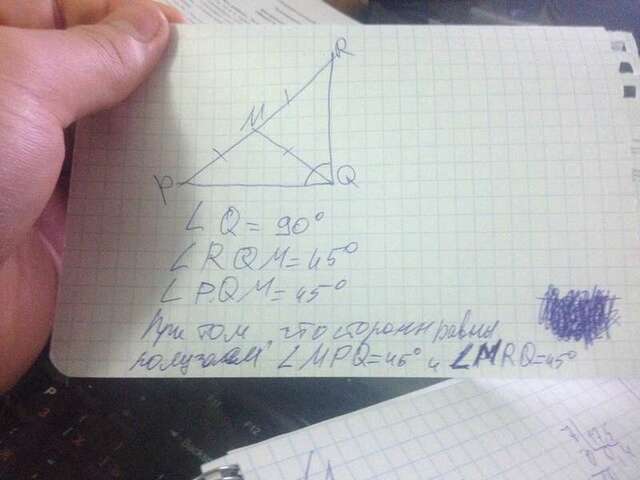 R
M
P
Q
∠ Q = 90°
∠ RQM = 45°
∠ PQM = 45°
При том что стороны равны
получаем ∠ MPQ = 45° и ∠ MRQ = 45°
P
F12